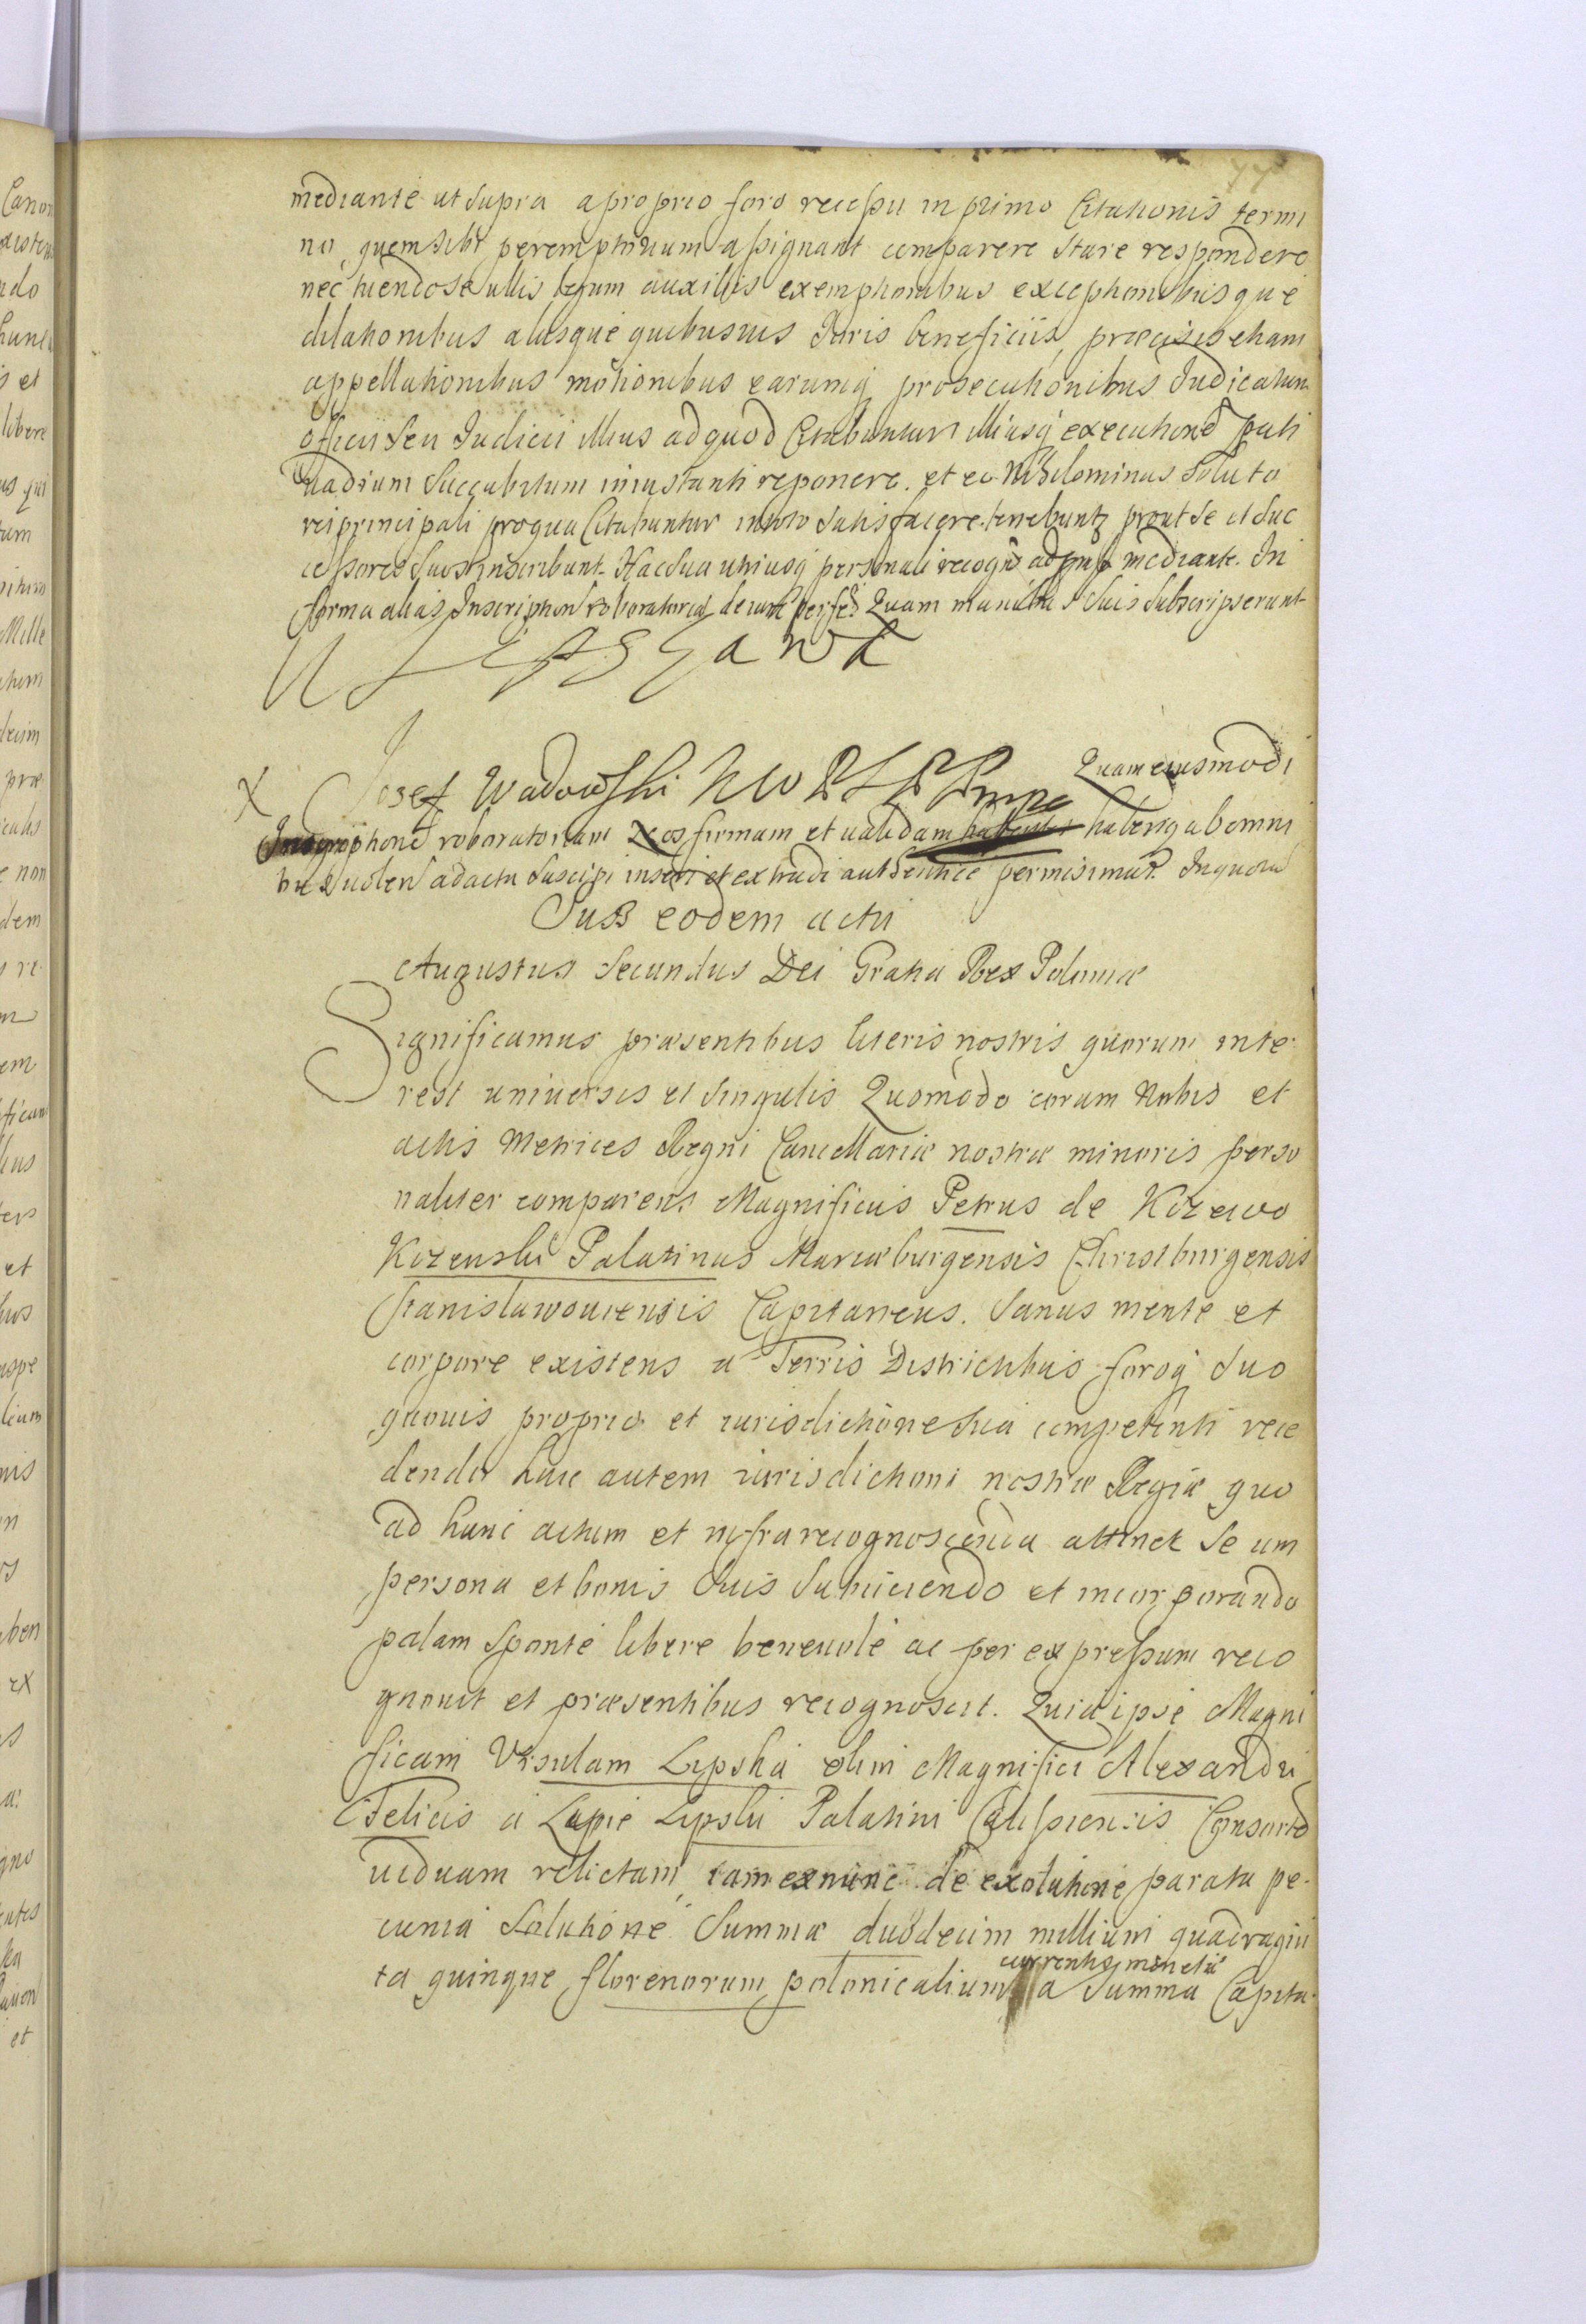 77
mediante ut supra a proprio foro recessu in primo Citationis termi
no, quem sibi peremptorium assignant comparere stare respondere
nec tuendo se ullis legum auxiliis exemptionibus exceptionibusque
dilationibus aliisque quibusuis Iuris beneficiis, præcisis etiam
appellationibus motionibus earumq prosecutionibus Iudicatum
officii seu Iudicii illius ad quod Citabuntur illiusq executione pati
uadium succubitum iniustanti reponere. et eo nihilominus soluto
rei principali pro qua Citabuntur in toto satisfacere tenebunt prout se et suc
cessores suos inscribunt. Hac sua utriusq personali recogn mediante. In
forma alias Inscription roboratoria de iure perfe. Quam manibus suis subscripserunt
Josef Wadowski NWPSPP mpa Quam eiusmodi
X Inscriptione roboratoriam Nos firmam et ualidam habentes habenq ab omni
bus uolen ad acta suscipi inseri et extradi authentice permisimus. In quoru
Sub eodem actu
Augustus Secundus Dei Gratia Rex Poloniæ
Significamus præsentibus literis nostris quorum inte
rest uniuersis et singulis Quomodo coram Nobis et
actis Metrices Regni Cancellariæ nostræ minoris perso
naliter comparens Magnificus Petrus de Kczewo
Kczenski Palatinus Mariæburgensis Christburgensis
Stanislawouiensis Capitaneus. Sanus mente et
corpore existens a Terris Districtibus foroq suo
quouis proprio et iurisdictione sua competenti rece
dendo huic autem iurisdictioni nostræ Regiæ quo
ad hunc actum et infra recognoscenda attinet se cum
persona et bonis suis subiiciendo et incorporando
palam sponte libere beneuole ac per expressum reco
gnouit et præsentibus recognoscit. Quia ipse Magni
ficam Ursulam Lipska olim Magnifici Alexandri
Felicis a Lipie Lipski Palatini Calissiensis Consorte
uiduam relictam, iam ex nunc de exolutione parata pe
cunia solutione summæ duodecim millium quadragin
currentis monetæ
ta quinque florenorum polonicalium a summa Capita